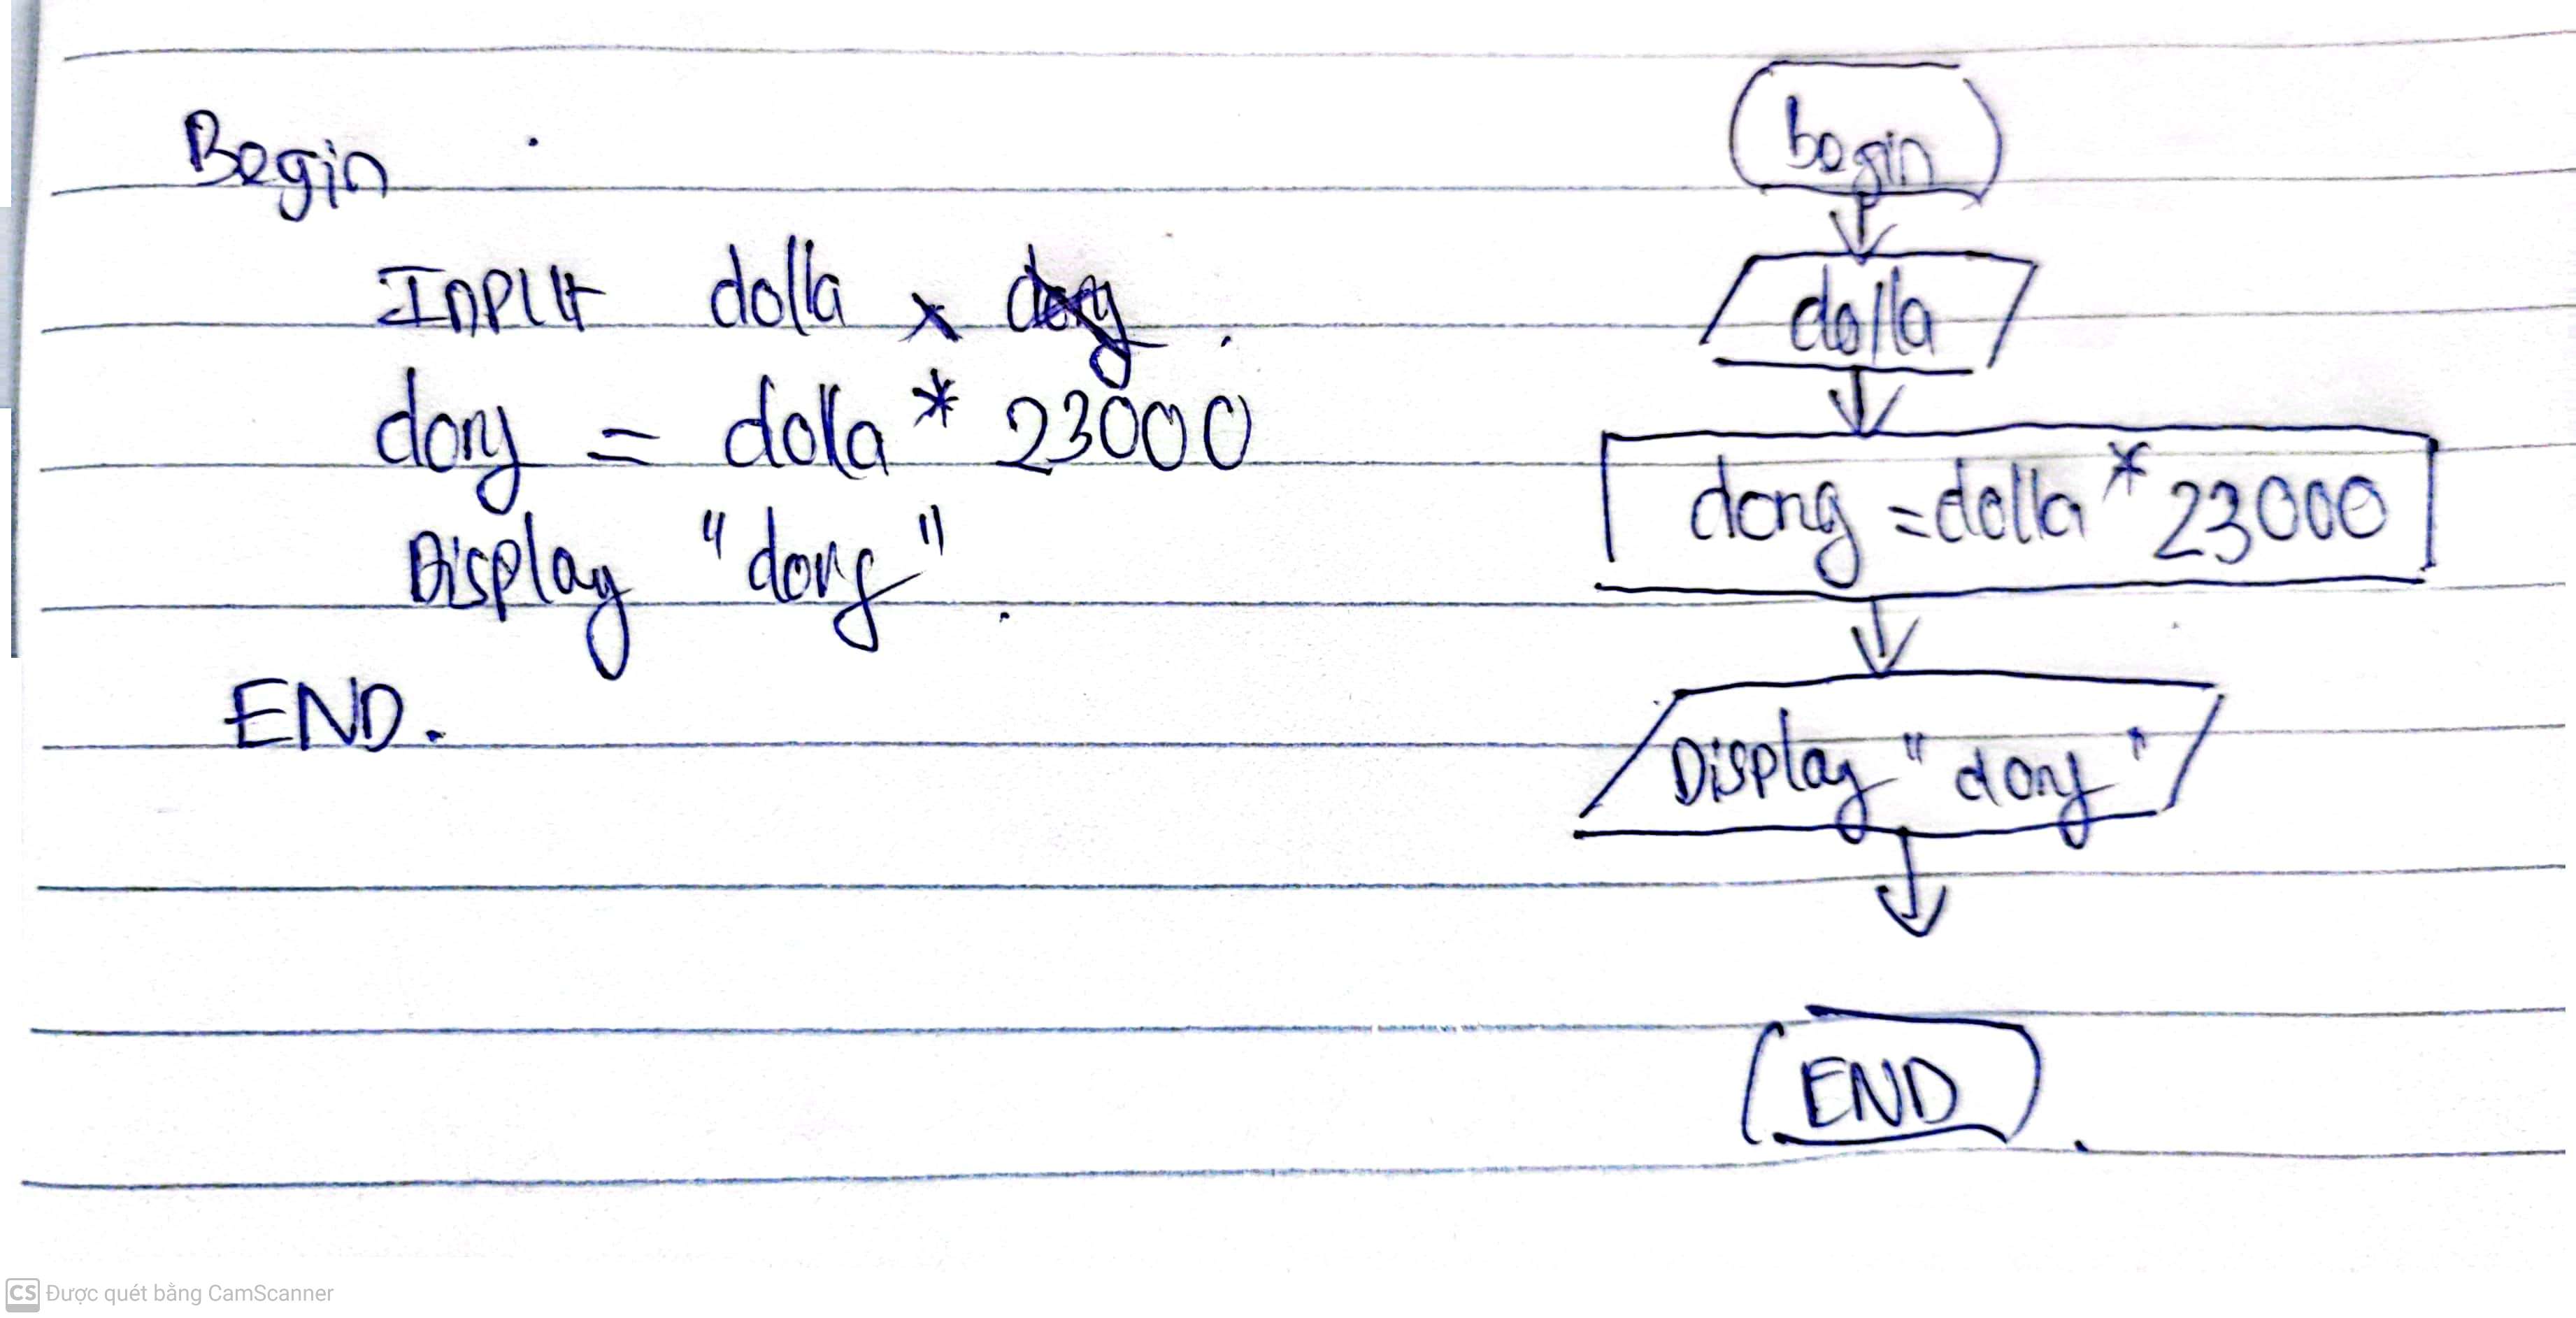 Begin
INPUT dolla
dong = dolla * 23000
Display "dong"
END.
begin
dolla
dong = dolla * 23000
Display "dong"
END
CS Được quét bằng CamScanner